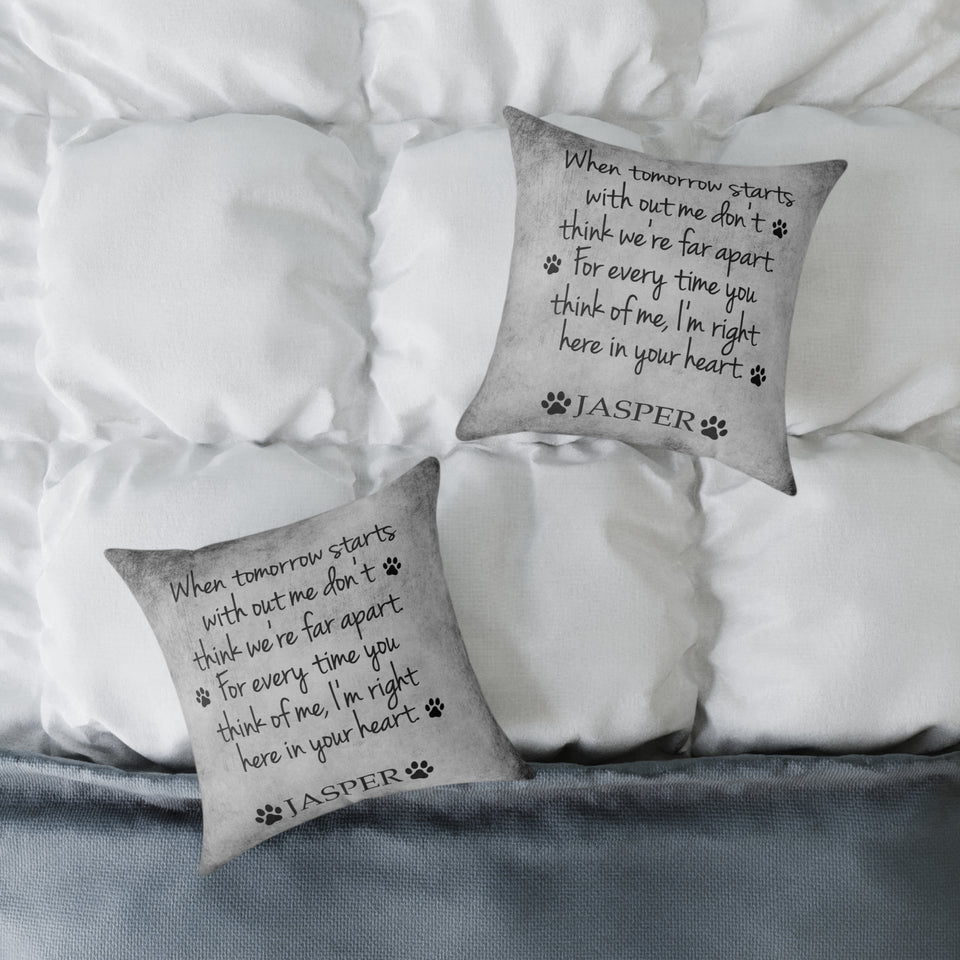 When tomorrow starts
with out me don't
think we're far apart.
For every time you
think of me, I'm right
here in your heart.
JASPER
When tomorrow starts
with out me don't
think we're far apart.
For every time you
think of me, I'm right
here in your heart.
JASPER